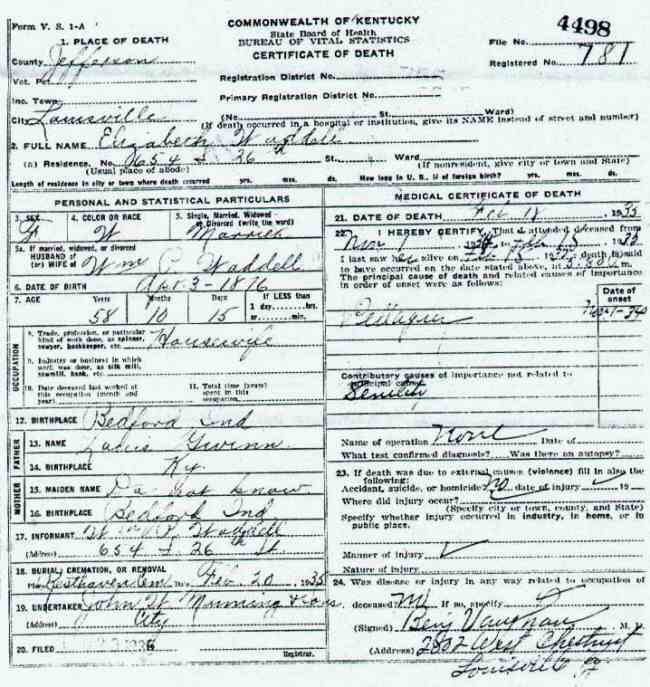 Form V. S. 1-A
COMMONWEALTH OF KENTUCKY
State Board of Health
BUREAU OF VITAL STATISTICS
CERTIFICATE OF DEATH
4498
File No.
Registered No. 781
1. PLACE OF DEATH
County Jefferson
Vot. Pct.
Inc. Town
City Louisville
Registration District No.
Primary Registration District No.
(No. St. Ward)
(If death occurred in a hospital or institution, give its NAME instead of street and number)
2. FULL NAME Elizabeth Waddell
(a) Residence. No. 654 S 26 th St. Ward
(Usual place of abode) (If nonresident, give city or town and State)
Length of residence in city or town where death occurred yrs. mos. ds. How long in U. S., if of foreign birth? yrs. mos. ds.
PERSONAL AND STATISTICAL PARTICULARS
3. SEX 4. COLOR OR RACE 5. Single, Married, Widowed or Divorced (write the word)
F W Married
5a. If married, widowed, or divorced
HUSBAND of
(or) WIFE of Wm P. Waddell
6. DATE OF BIRTH Apr-3-1876
7. AGE Years Months Days If LESS than
58 10 15 1 day hrs.
or min.
OCCUPATION
8. Trade, profession, or particular kind of work done, as spinner, sawyer, bookkeeper, etc. Housewife
9. Industry or business in which work was done, as silk mill, sawmill, bank, etc.
10. Date deceased last worked at this occupation (month and year)
11. Total time (years) spent in this occupation
12. BIRTHPLACE Bedford Ind
FATHER
13. NAME Gwinn
14. BIRTHPLACE Ky.
MOTHER
15. MAIDEN NAME Do not know
16. BIRTHPLACE Bedford Ind
17. INFORMANT Wm P. Waddell
(Address) 654 S 26 th St.
18. BURIAL, CREMATION, OR REMOVAL
Resthaven Cem. Feb. 20 1935
19. UNDERTAKER John W. Manning & Sons
(Address) City
20. FILED
Registrar.
MEDICAL CERTIFICATE OF DEATH
21. DATE OF DEATH Feb 18 1935
22. I HEREBY CERTIFY, That I attended deceased from
Nov 1 1934 to Feb 18 1935
I last saw her alive on Feb 18 1935 death is said
to have occurred on the date stated above, at m.
The principal cause of death and related causes of importance
in order of onset were as follows:
Date of
onset
Pellagra Nov-1-34
Contributory causes of importance not related to
principal cause:
Senility
Name of operation None Date of
What test confirmed diagnosis? Was there an autopsy?
23. If death was due to external causes (violence) fill in also the
following:
Accident, suicide, or homicide? No date of injury 19
Where did injury occur?
(Specify city or town, county, and State)
Specify whether injury occurred in industry, in home, or in
public place.
Manner of injury
Nature of injury
24. Was disease or injury in any way related to occupation of
deceased? No If so, specify
(Signed) Benj Vaughan M. D.
(Address) 2802 West Chestnut
Louisville Ky